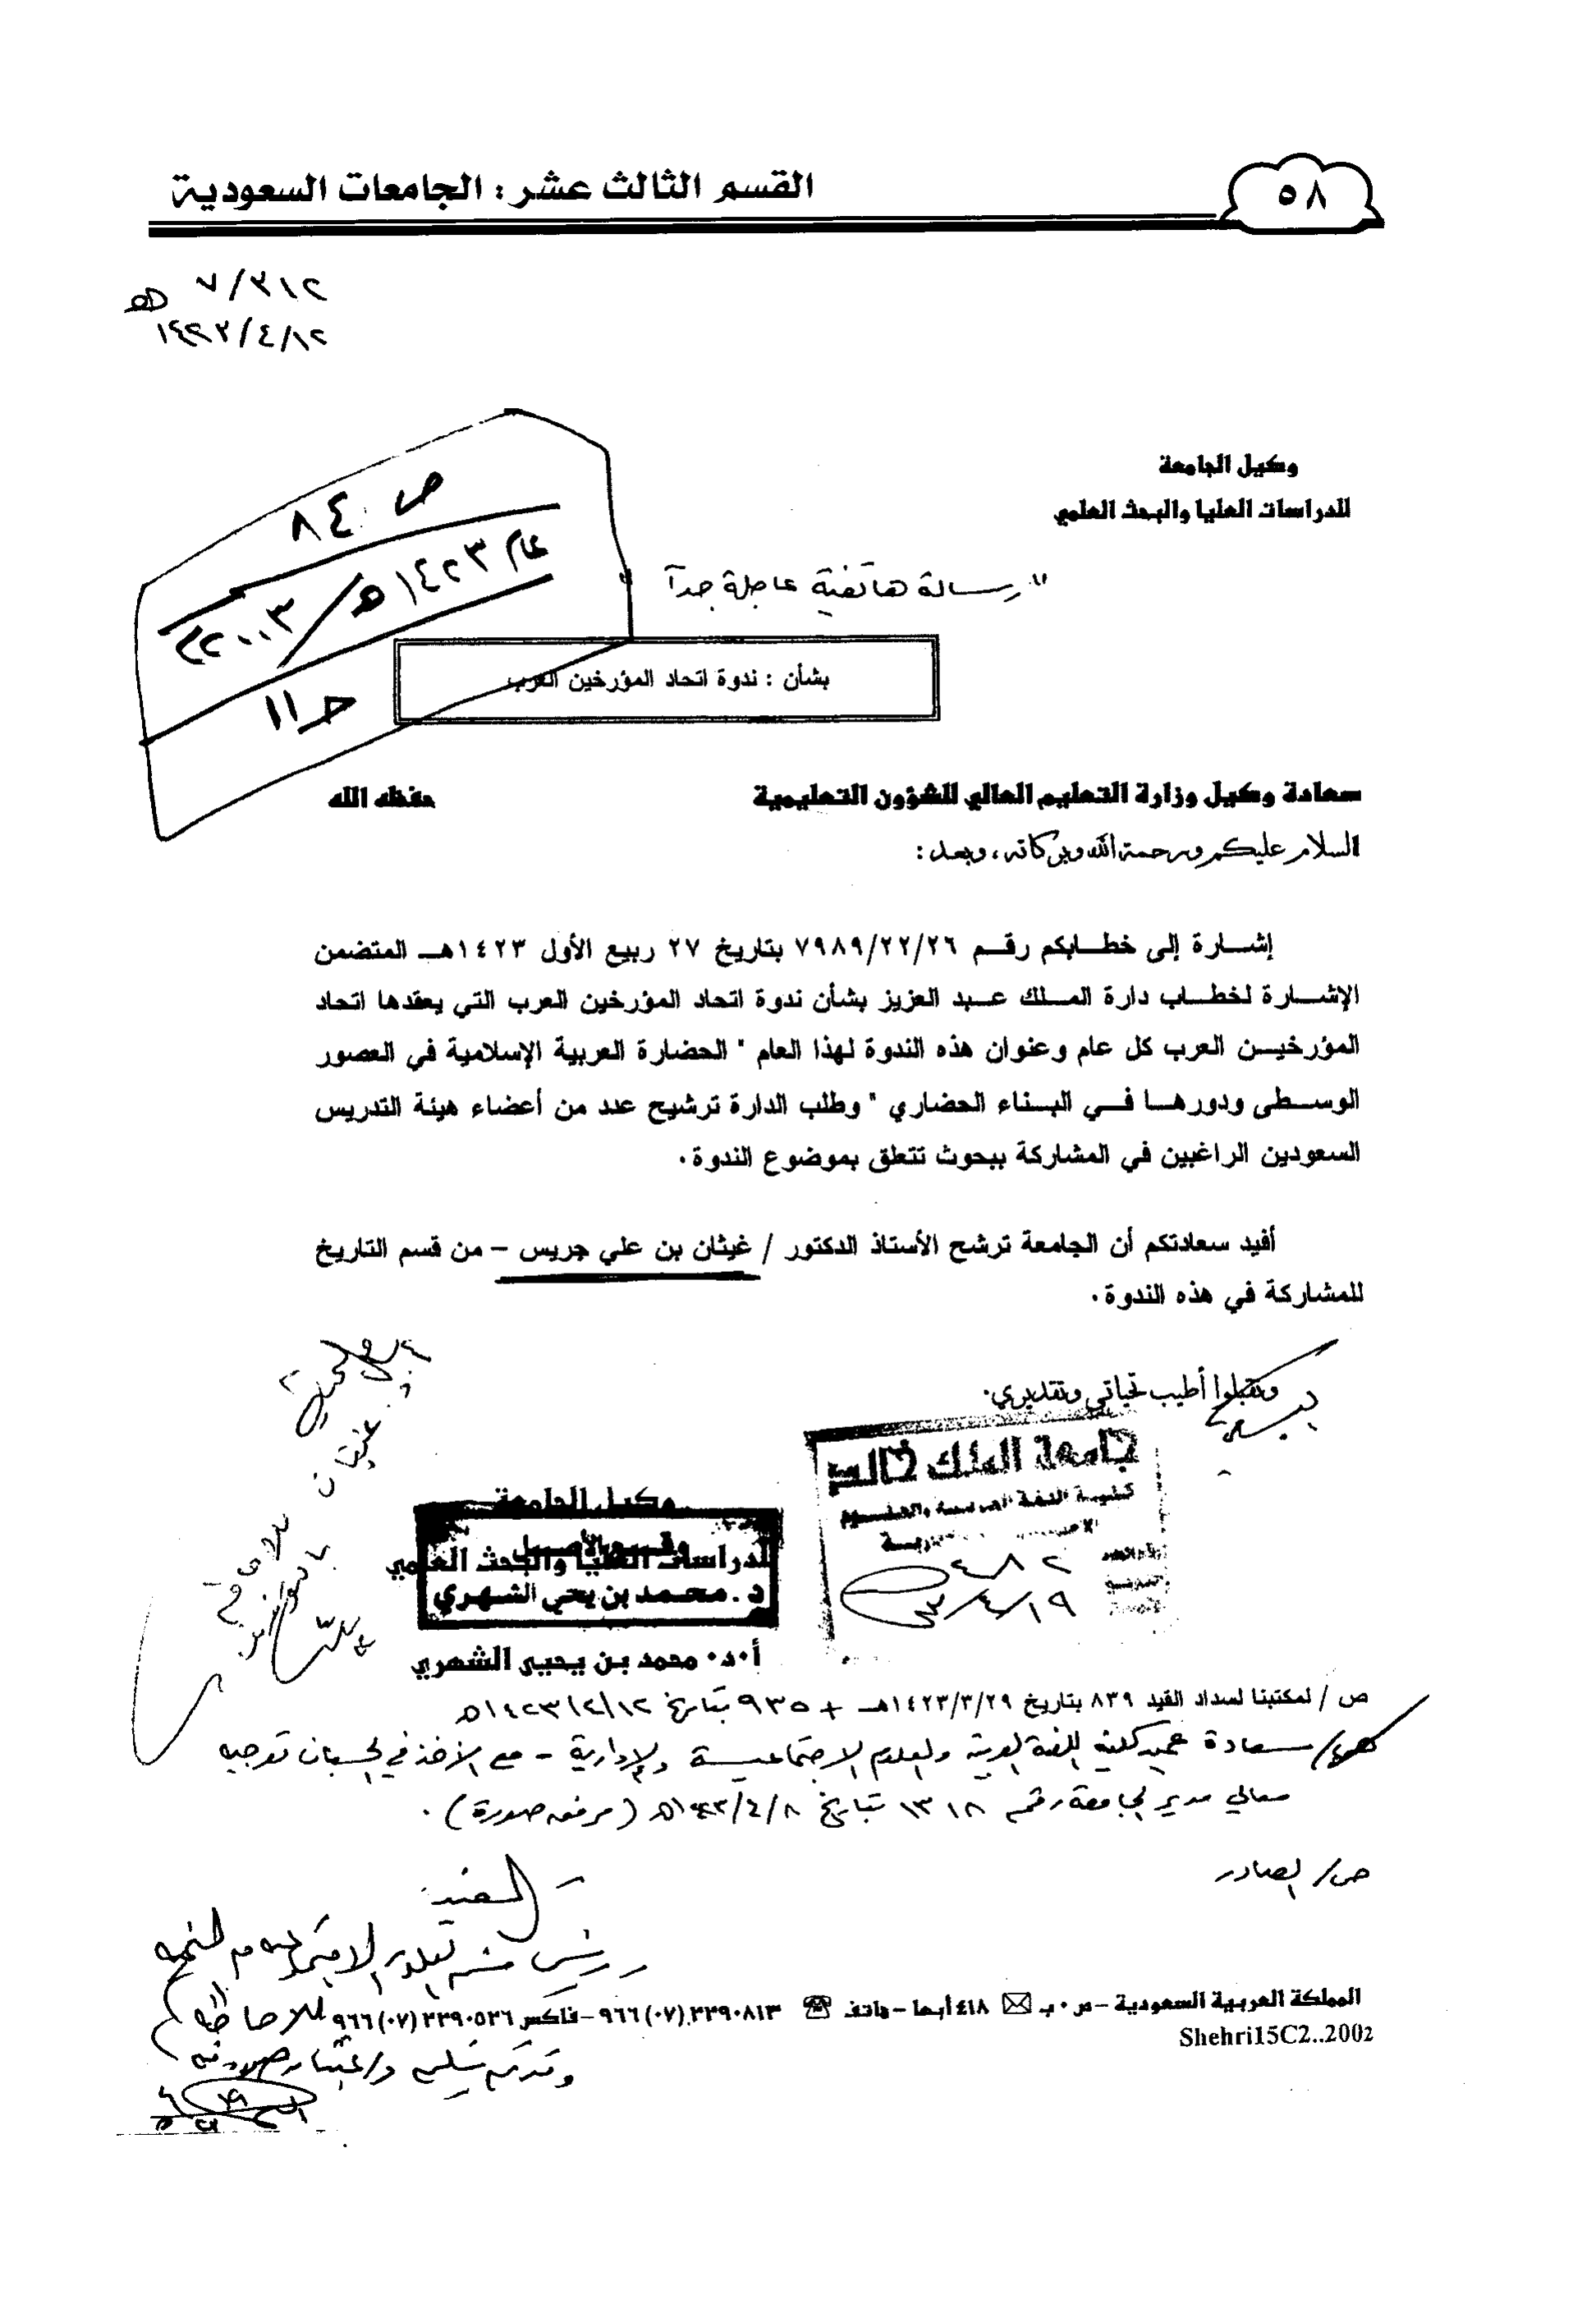 القسم الثالث عشر : الجامعات السعودية
٥٨
٧/٣١٢
١٤٢٣/٤/١٢ هـ
وكيل الجامعة
للدراسات العليا والبحث العلمي
ص ٨٤
عام ١٤٢٣هـ / ٢٠٠٣م
حـ ١١
" رسالة هاتفية عاجلة جداً "
بشأن : ندوة اتحاد المؤرخين العرب
سعادة وكيل وزارة التعليم العالي للشؤون التعليمية حفظه الله
السلام عليكم ورحمة الله وبركاته ، وبعد :
إشـــارة إلى خطـــابكم رقـــم ٧٩٨٩/٢٢/٢٦ بتاريخ ٢٧ ربيع الأول ١٤٢٣هــ المتضمن
الإشـــارة لخطـــاب دارة المــلك عــبد العزيز بشأن ندوة اتحاد المؤرخين العرب التي يعقدها اتحاد
المؤرخيــن العرب كل عام وعنوان هذه الندوة لهذا العام " الحضارة العربية الإسلامية في العصور
الوســطى ودورهــا فــي البــناء الحضاري " وطلب الدارة ترشيح عدد من أعضاء هيئة التدريس
السعودين الراغبين في المشاركة ببحوث تتعلق بموضوع الندوة .
أفيد سعادتكم أن الجامعة ترشح الأستاذ الدكتور / غيثان بن علي جريس – من قسم التاريخ
للمشاركة في هذه الندوة .
وتقبلوا أطيب تحياتي وتقديري .
جامعة الملك خالد
٤٨٢
٤/١٩
وكيل الجامعة
للدراسات العليا والبحث العلمي
وقــيــع الأصــيــل
د . محــمــد بن يحي الشهري
أ . د . محمد بن يحيى الشهري
ص / لمكتبنا لسداد القيد ٨٣٩ بتاريخ ١٤٢٣/٣/٢٩هــ + ٩٣٥ بتاريخ ١٤٢٣/٤/١٢هـ
سعادة عميد كلية اللغة العربية والعلوم الاجتماعية والإدارية – مع الأخذ في الحسبان توجيه
معالي مدير الجامعة رقم ١٣١٨ بتاريخ ١٤٢٣/٤/٨هـ ( مرفقه صورة ) .
ص/ الصادر
المملكة العربية السعودية – ص . ب ٤١٨ أبها – هاتف ٢٢٩٠٨١٣ (٠٧) ٩٦٦ – فاكس ٢٢٩٠٥٢٦ (٠٧) ٩٦٦
Shehri15C2..2002